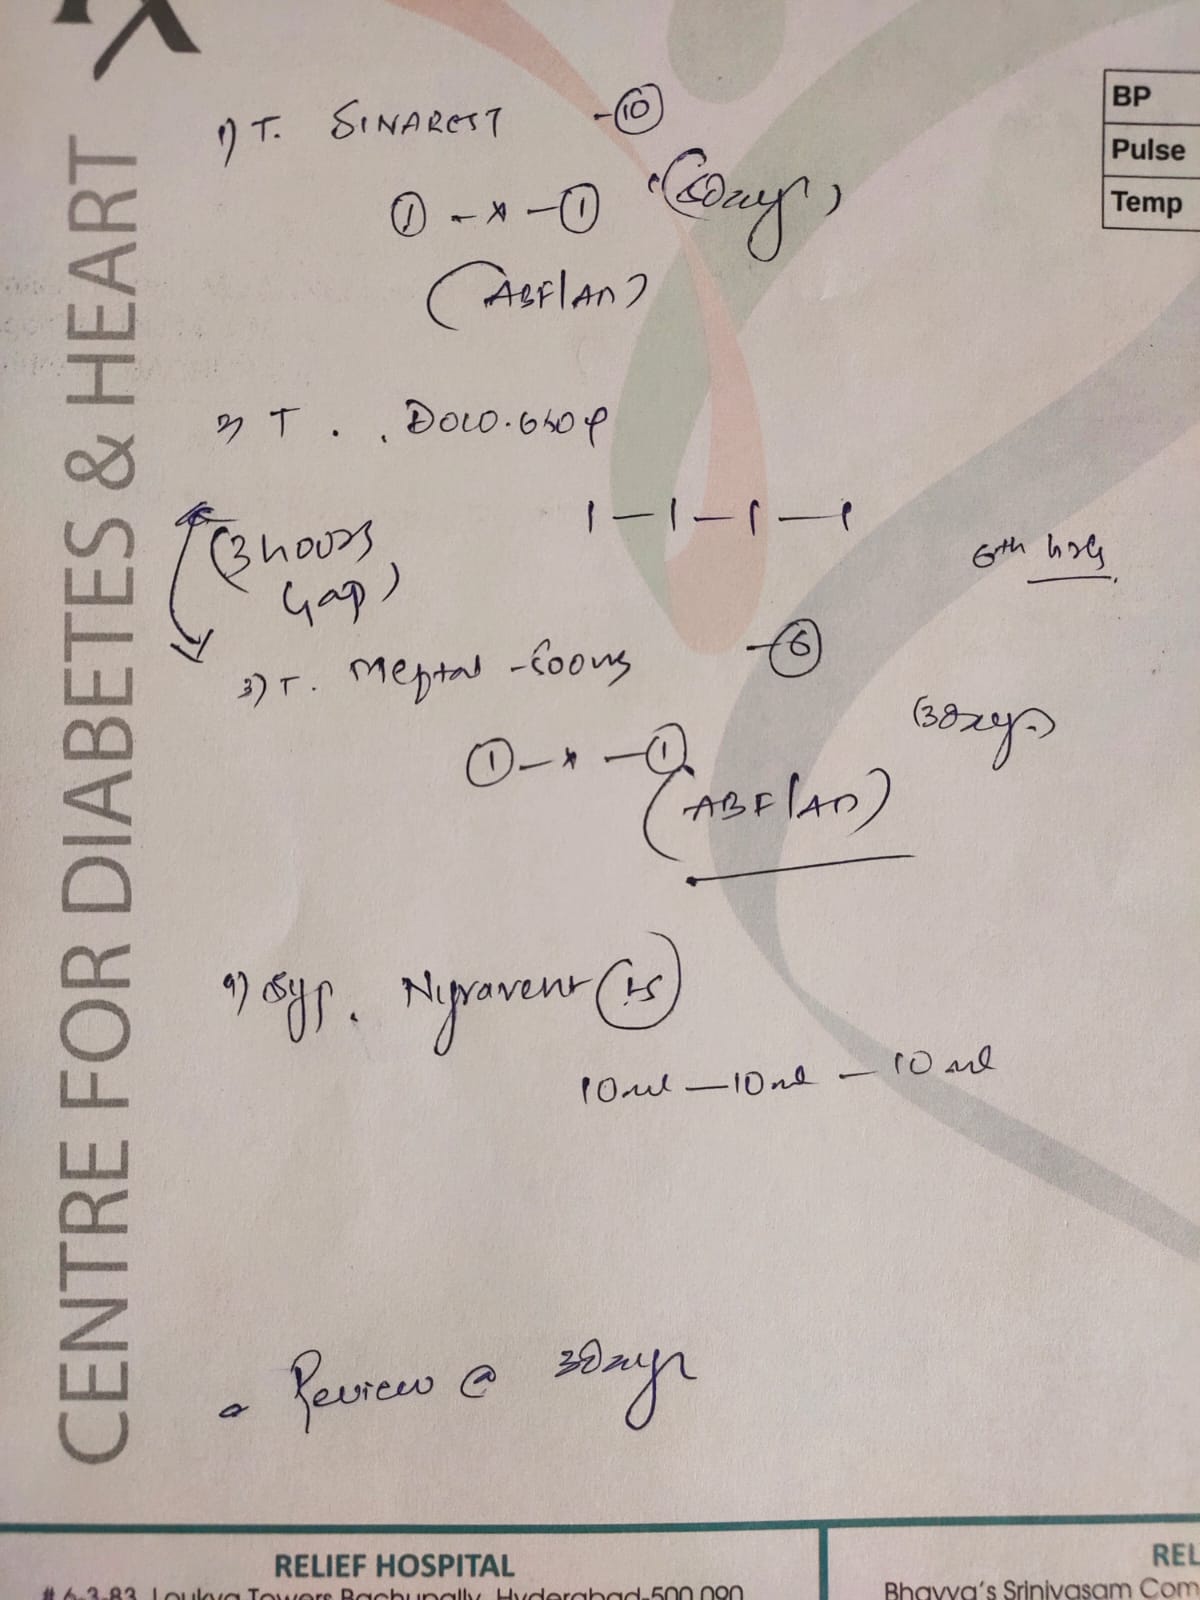 CENTRE FOR DIABETES & HEART
BP
Pulse
Temp
1) T. SINAREST -10
1 - x - 1 (5Days)
(ABF/AD)
2) T. DOLO.650
1-1-1-1
6th hrly
(3 hours
Gap)
3) T. Meftal -500mg -6
1 - x - 1 (3Days)
(ABF/AD)
4) Syp.
10ml - 10ml - 10ml
Review @ 3Days
RELIEF HOSPITAL
# 6-3-83, Loukya Towers Bachupally, Hyderabad-500 090
REL
Bhavya's Srinivasam Com